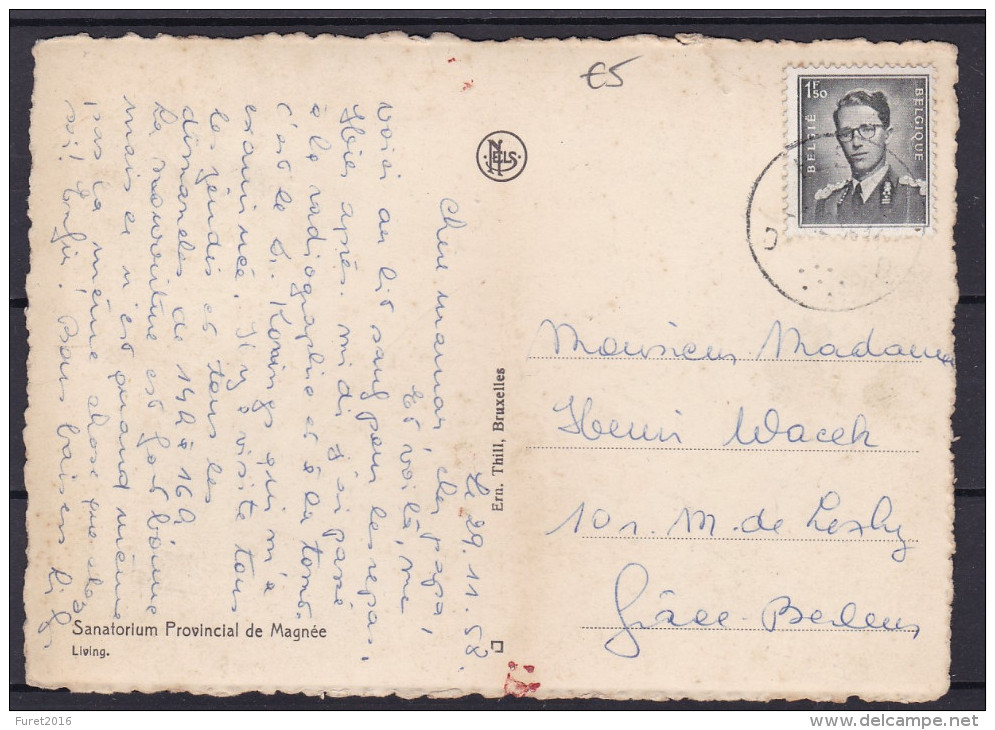 €5
1F50
BELGIË
BELGIQUE
NELS
Le 29.11.58.
Chère maman, cher papa,
Et voilà, me
voici au lit sauf pour les repas.
Hier après-midi j'ai passé
à la radiographie et à la tomo.
c'est le Dr. Konings qui m'a
examinée. Il y a visite tous
les jeudis et tous les
dimanches de 14h à 16h
La nourriture est fort bonne
mais ce n'est quand même
pas la même chose que chez
soi! Enfin! Bons baisers
Ern. Thill, Bruxelles
Monsieur Madame
Henri Wacek
10 r. M. de
Grâce-Berleur
Sanatorium Provincial de Magnée
Living.
Furet2016
delcampe.net